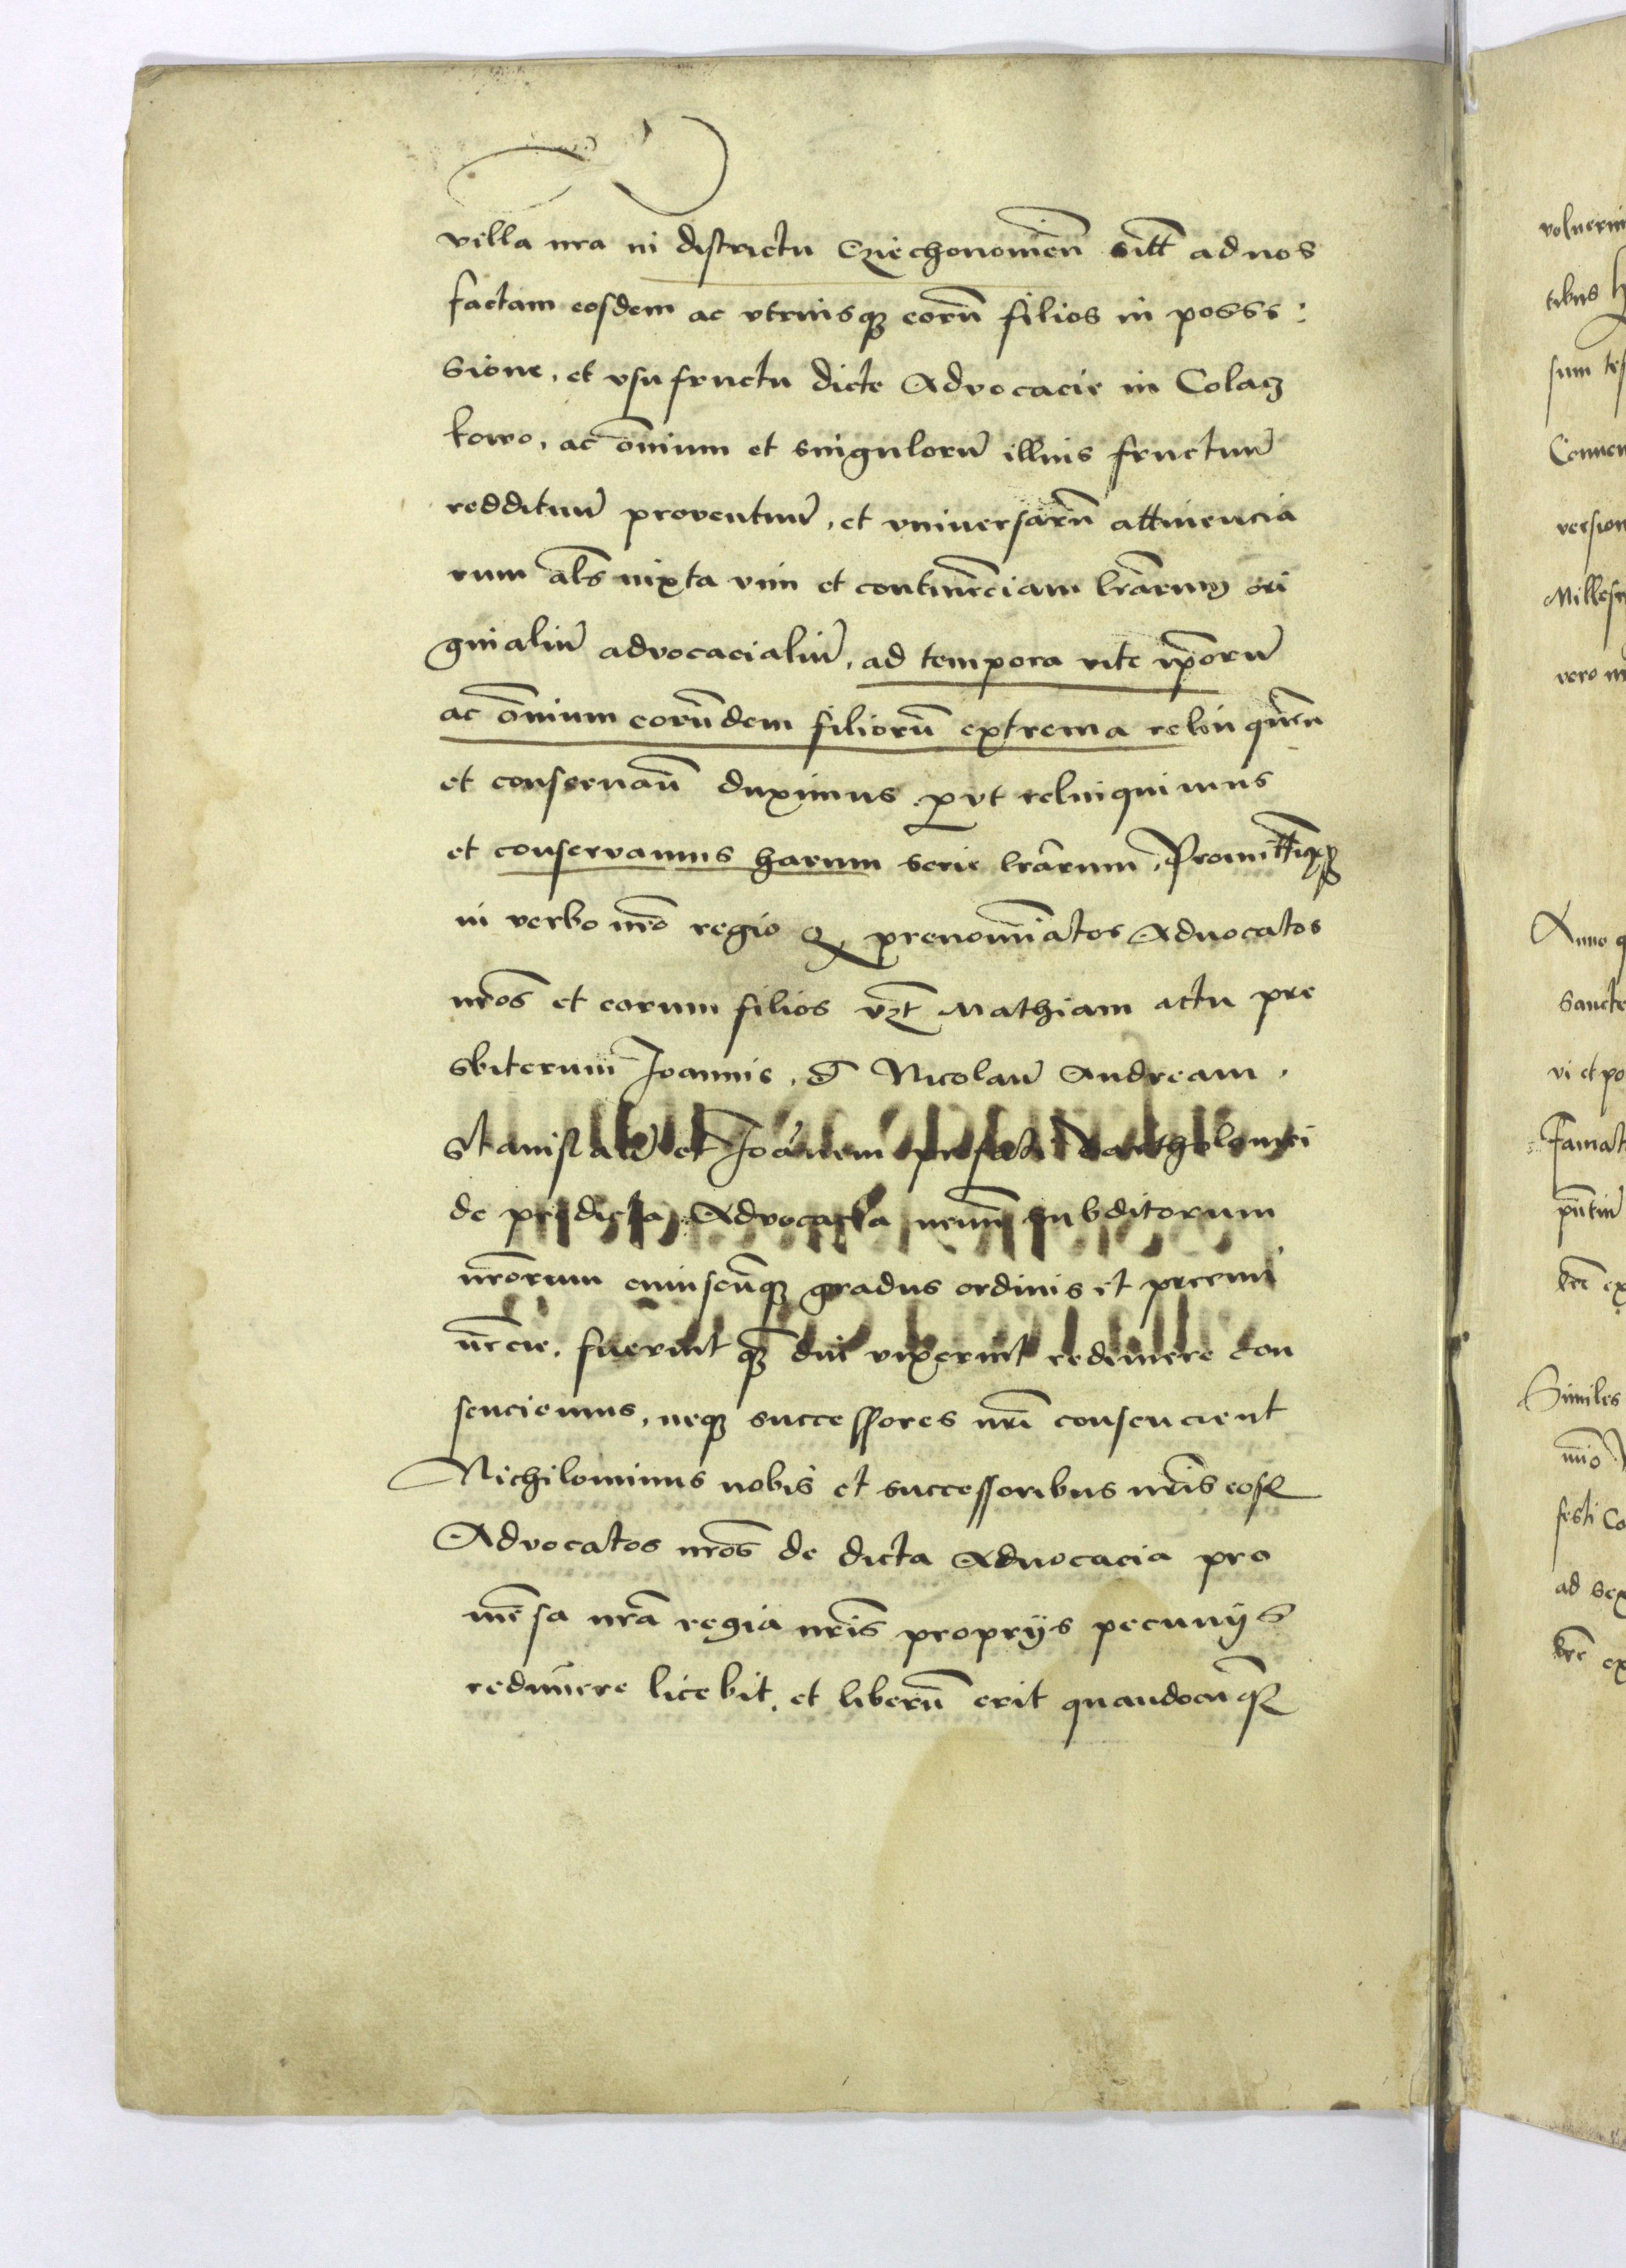 villa nra in districtu Cziechonomien̄ sitt̄ ad nos
factam eosdem ac vtriusqꝫ eorū filios in posses:
sione, et vsufructu dicte Advocacie in Colacz
kowo, ac om̄ium et singulorū illius fructuū
reddituū proventuū, et vniversarū attinencia
rum als̄ iuxta vim et continēciam lr̄arum ori
ginaliū advocacialiū, ad tempora vite ip̄orū
ac om̄ium eorūdem filiorū extrema relinquēn
et conservan̄ duximus ꝓut relinquimus
et conservamus harum serie lr̄arum, Promittimꝰqꝫ
in verbo nr̄o regio Qꝫ prenominatos Advocatos
nr̄os et eorum filios vꝫt Mathiam actu pre
sbiterum Joannis, et Nicolaū Andream,
Stanislaū et Joānem prefati Bartholomei
de predicta Advocacia nemī subditorum
nr̄orum cuiuscūqꝫ gradus ordinis et preemi
nēcie, fuerint qꝫ diu vixerint redimere con
senciemus, neqꝫ successores nr̄i consencient
Nichilominus nobis et successoribus nr̄is eosd̄
Advocatos nr̄os de dicta Advocacia pro
mēsa nr̄a regia nr̄is proprijs pecunijs
redimere licebit, et liberū erit quandocūqꝫ
volverin
tibus
sum tes
Conven
version
Millesi
vero
Anno q
Sancte
vi et po
Famat
pn̄tiū
Similes
festi Co
ad sex